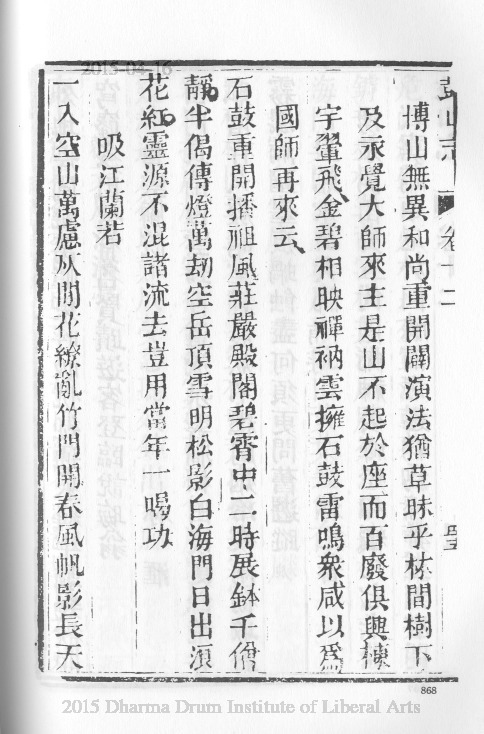 2015-04-16
鼓山志 卷十二
博山無異和尚重開闢演法猶草昧乎林間樹下
及永覺大師來主是山不起於座而百廢俱興棟
宇翬飛金碧相映禪衲雲擁石鼓雷鳴衆咸以爲
國師再來云
石鼓重開播祖風莊嚴殿閣碧霄中二時展鉢千僧
靜半偈傳燈萬劫空岳頂雪明松影白海門日出浪
花紅靈源不混諸流去豈用當年一喝功
吸江蘭若
一入空山萬慮灰閒花繚亂竹門開春風帆影長天
868
2015 Dharma Drum Institute of Liberal Arts